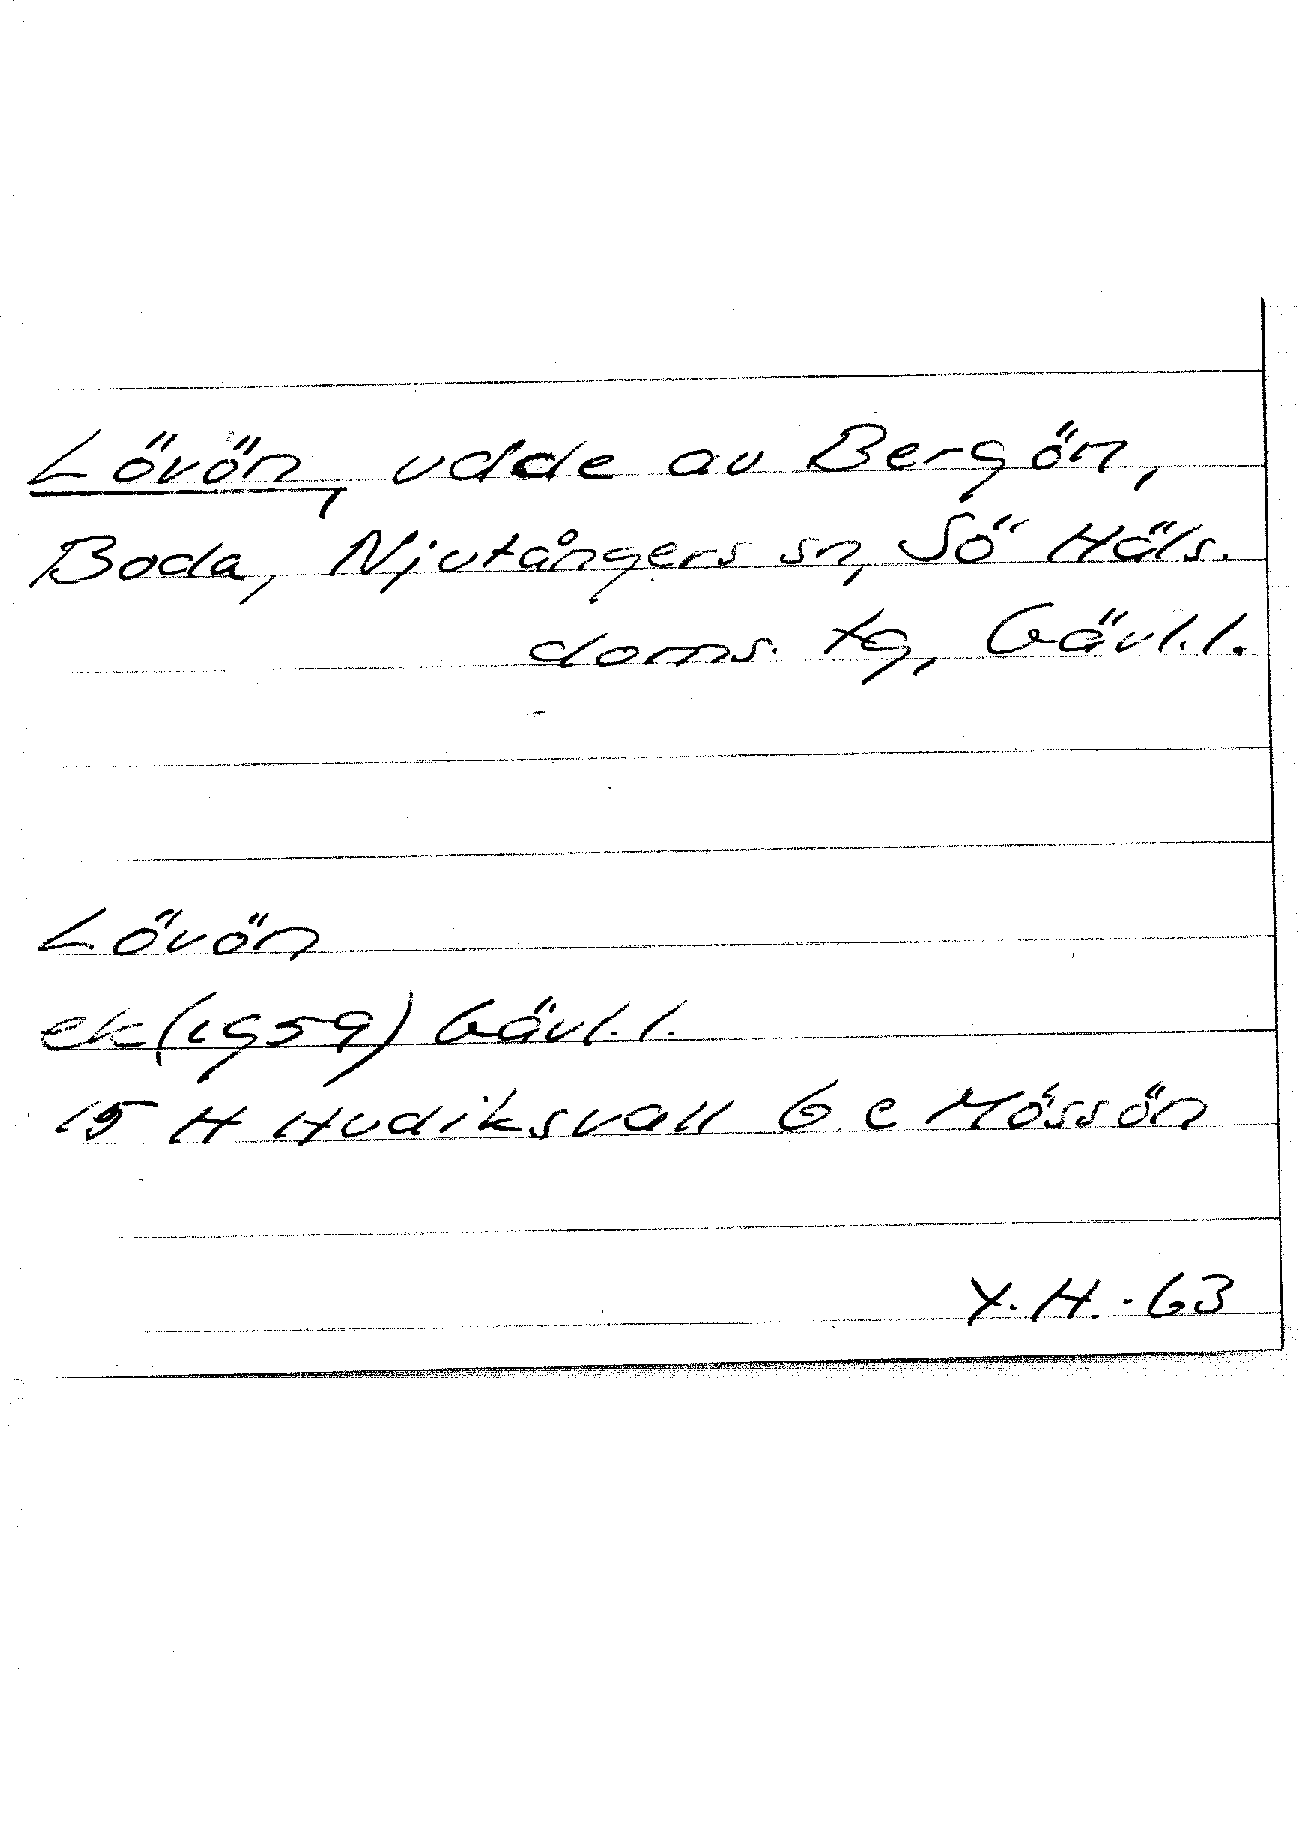 Lövön, udde av Bergön,
Boda, Njutångers sn, Sö Häls.
doms. tg, Gävl.l.
Lövön
ek(1959) Gävl.l.
15 H Hudiksvall 6 c Mössön
Y.H.-63